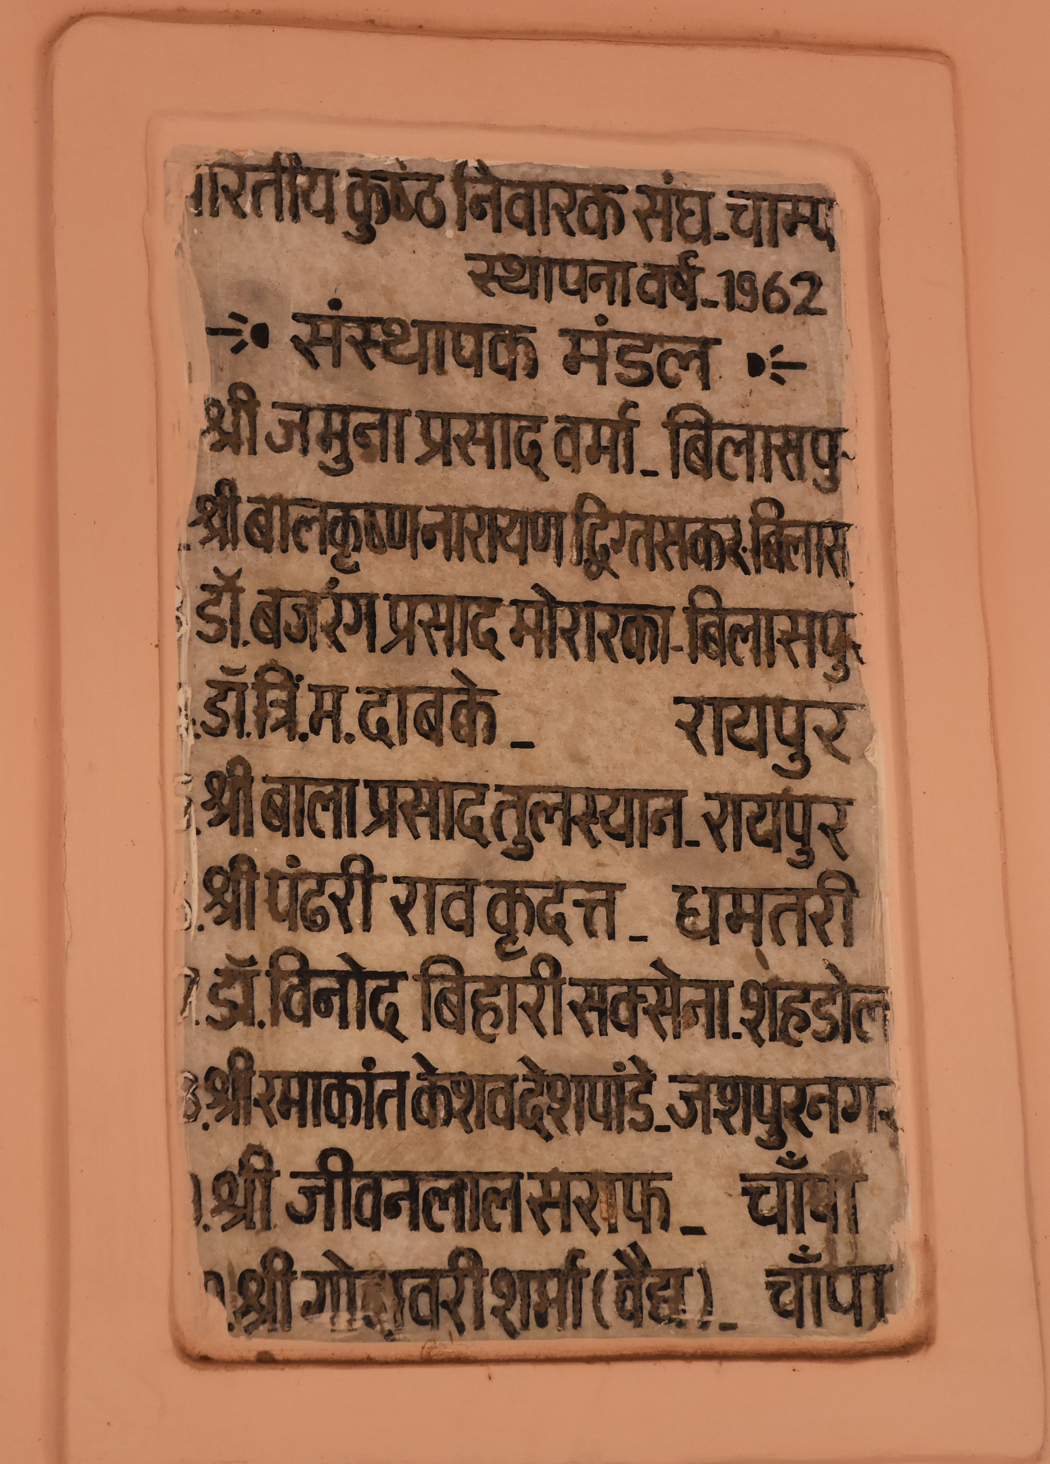 ारतीय कुष्ठ निवारक संघ-चाम्प
स्थापना वर्ष-1962
संस्थापक मंडल
श्री जमुना प्रसाद वर्मा - बिलासपु
श्री बालकृष्ण नारायण बिलास
डॉ. बजरंग प्रसाद मोरारका-बिलासपुर
डॉ. त्रिं.म. दाबके - रायपुर
5. श्री बाला प्रसाद तुलस्यान - रायपुर
6. श्री पंढरी राव कृदत्त - धमतरी
7. डॉ. विनोद बिहारी सक्सेना. शहडोल
8. श्री रमाकांत केशव देशपांडे - जशपुरनगर
श्री जीवनलाल सराफ - चाँपा
श्री गोदावरी शर्मा (वैद्य) - चाँपा